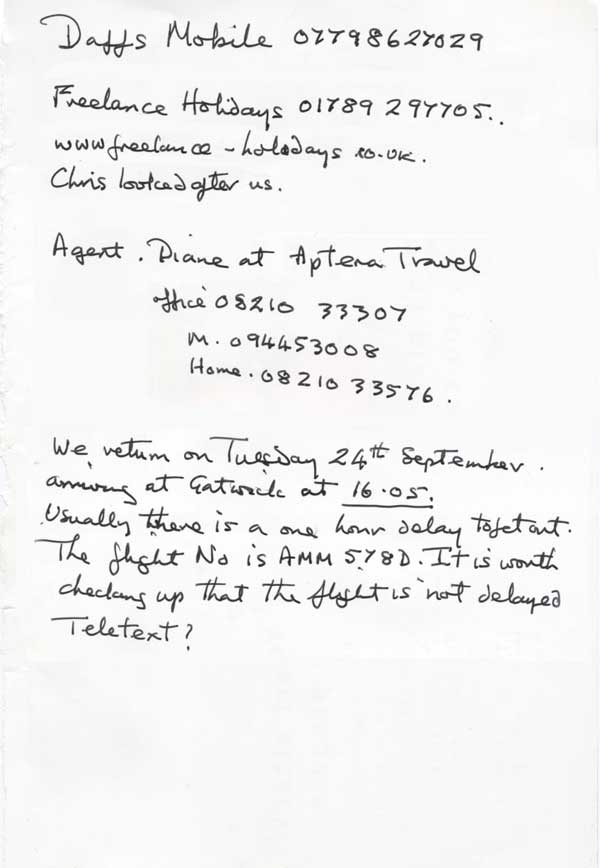 Daffs Mobile 07798627029
Freelance Holidays 01789 297705..
www.freelance-holidays.co.uk.
Chris looked after us.
Agent. Diane at Aptera Travel
office 08210 33307
M. 094453008
Home. 08210 33576.
We return on Tuesday 24th September.
arriving at Gatwick at 16.05.
Usually there is a one hour delay to get out.
The flight No is AMM 578D. It is worth
checking up that the flight is not delayed
Teletext?